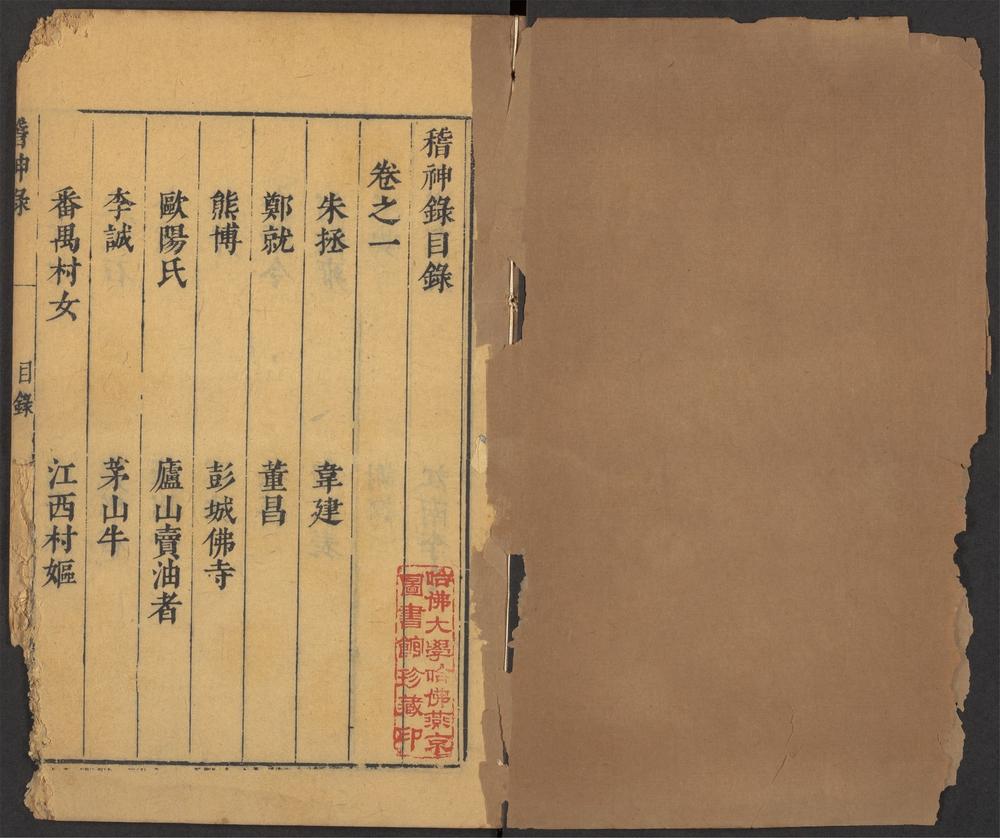 稽神錄目錄
卷之一
朱拯
韋建
鄭就
董昌
熊博
彭城佛寺
歐陽氏
廬山賣油者
李誠
茅山牛
番禺村女
江西村嫗
稽神錄
目錄
哈佛大學哈佛燕京
圖書館珍藏印